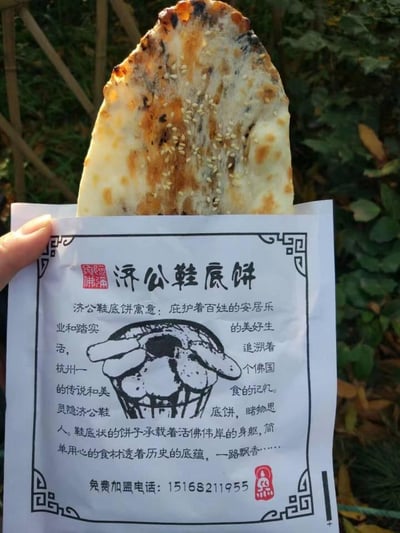 阿弥陀佛
济公鞋底饼
济公鞋底饼寓意：庇护着百姓的安居乐
业和踏实 的美好生
活， 追溯着
杭州一 个佛国
的传说和美 食的记忆。
灵隐济公鞋 底饼，睹物思
人，鞋底状的饼子承载着活佛伟岸的身躯，简
单用心的食材透着历史的底蕴，一路飘香……
免费加盟电话：15168211955